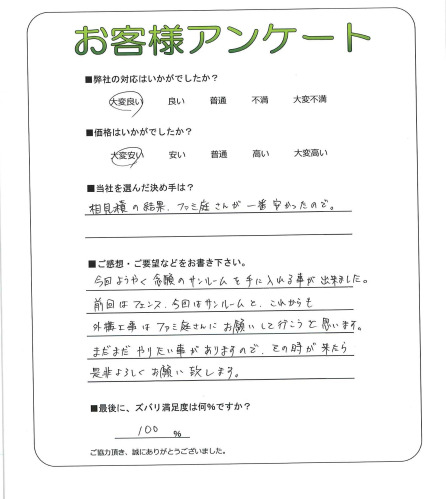 お客様アンケート
■弊社の対応はいかがでしたか？
大変良い 良い 普通 不満 大変不満
■価格はいかがでしたか？
大変安い 安い 普通 高い 大変高い
■当社を選んだ決め手は？
相見積の結果、ファミ庭さんが一番安かったので。
■ご感想・ご要望などをお書き下さい。
今回ようやく念願のサンルームを手に入れる事が出来ました。
前回はフェンス、今回はサンルームと、これからも
外構工事はファミ庭さんにお願いして行こうと思います。
まだまだやりたい事がありますので、その時が来たら
是非よろしくお願い致します。
■最後に、ズバリ満足度は何%ですか？
100 %
ご協力頂き、誠にありがとうございました。